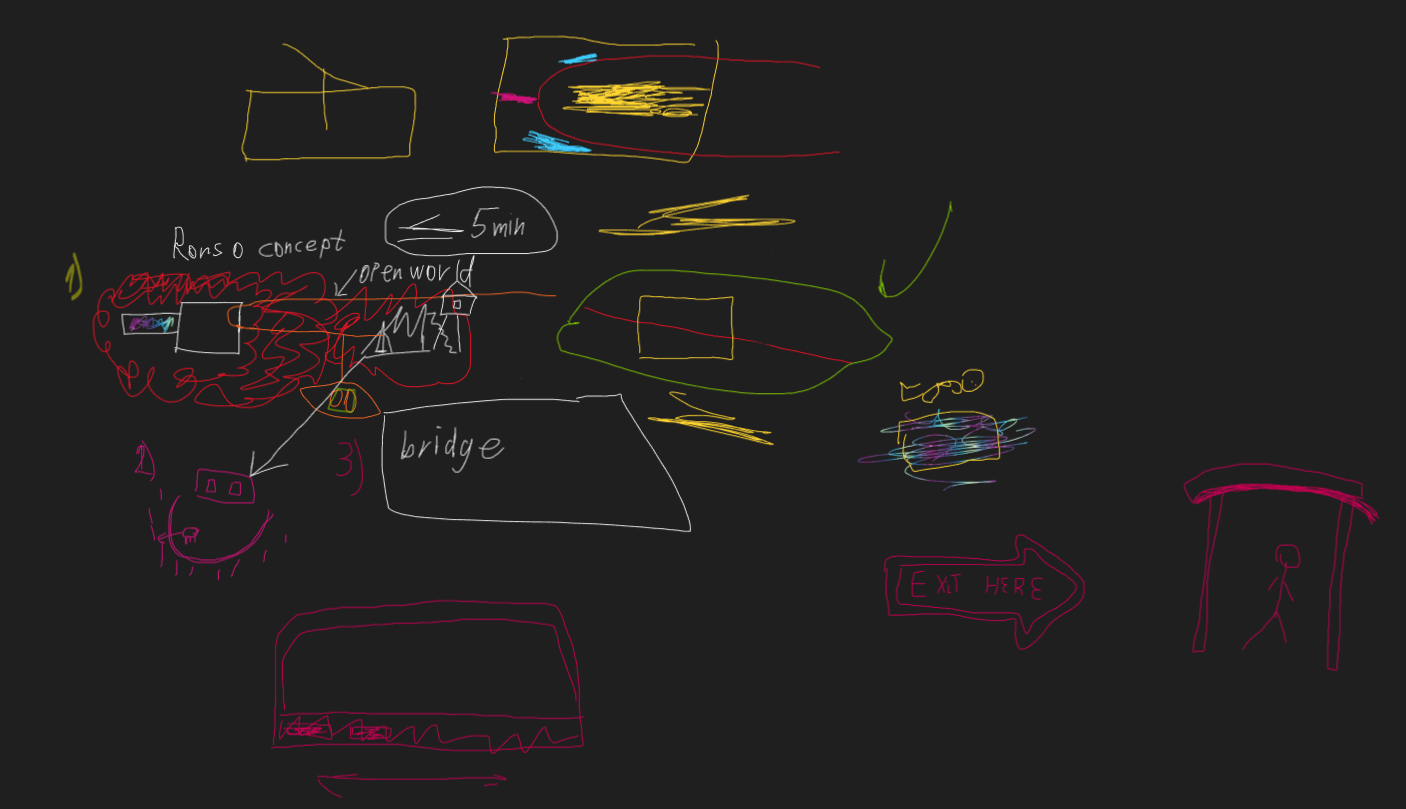 5 min
Ronso concept
open world
1)
2)
3)
bridge
EXIT HERE